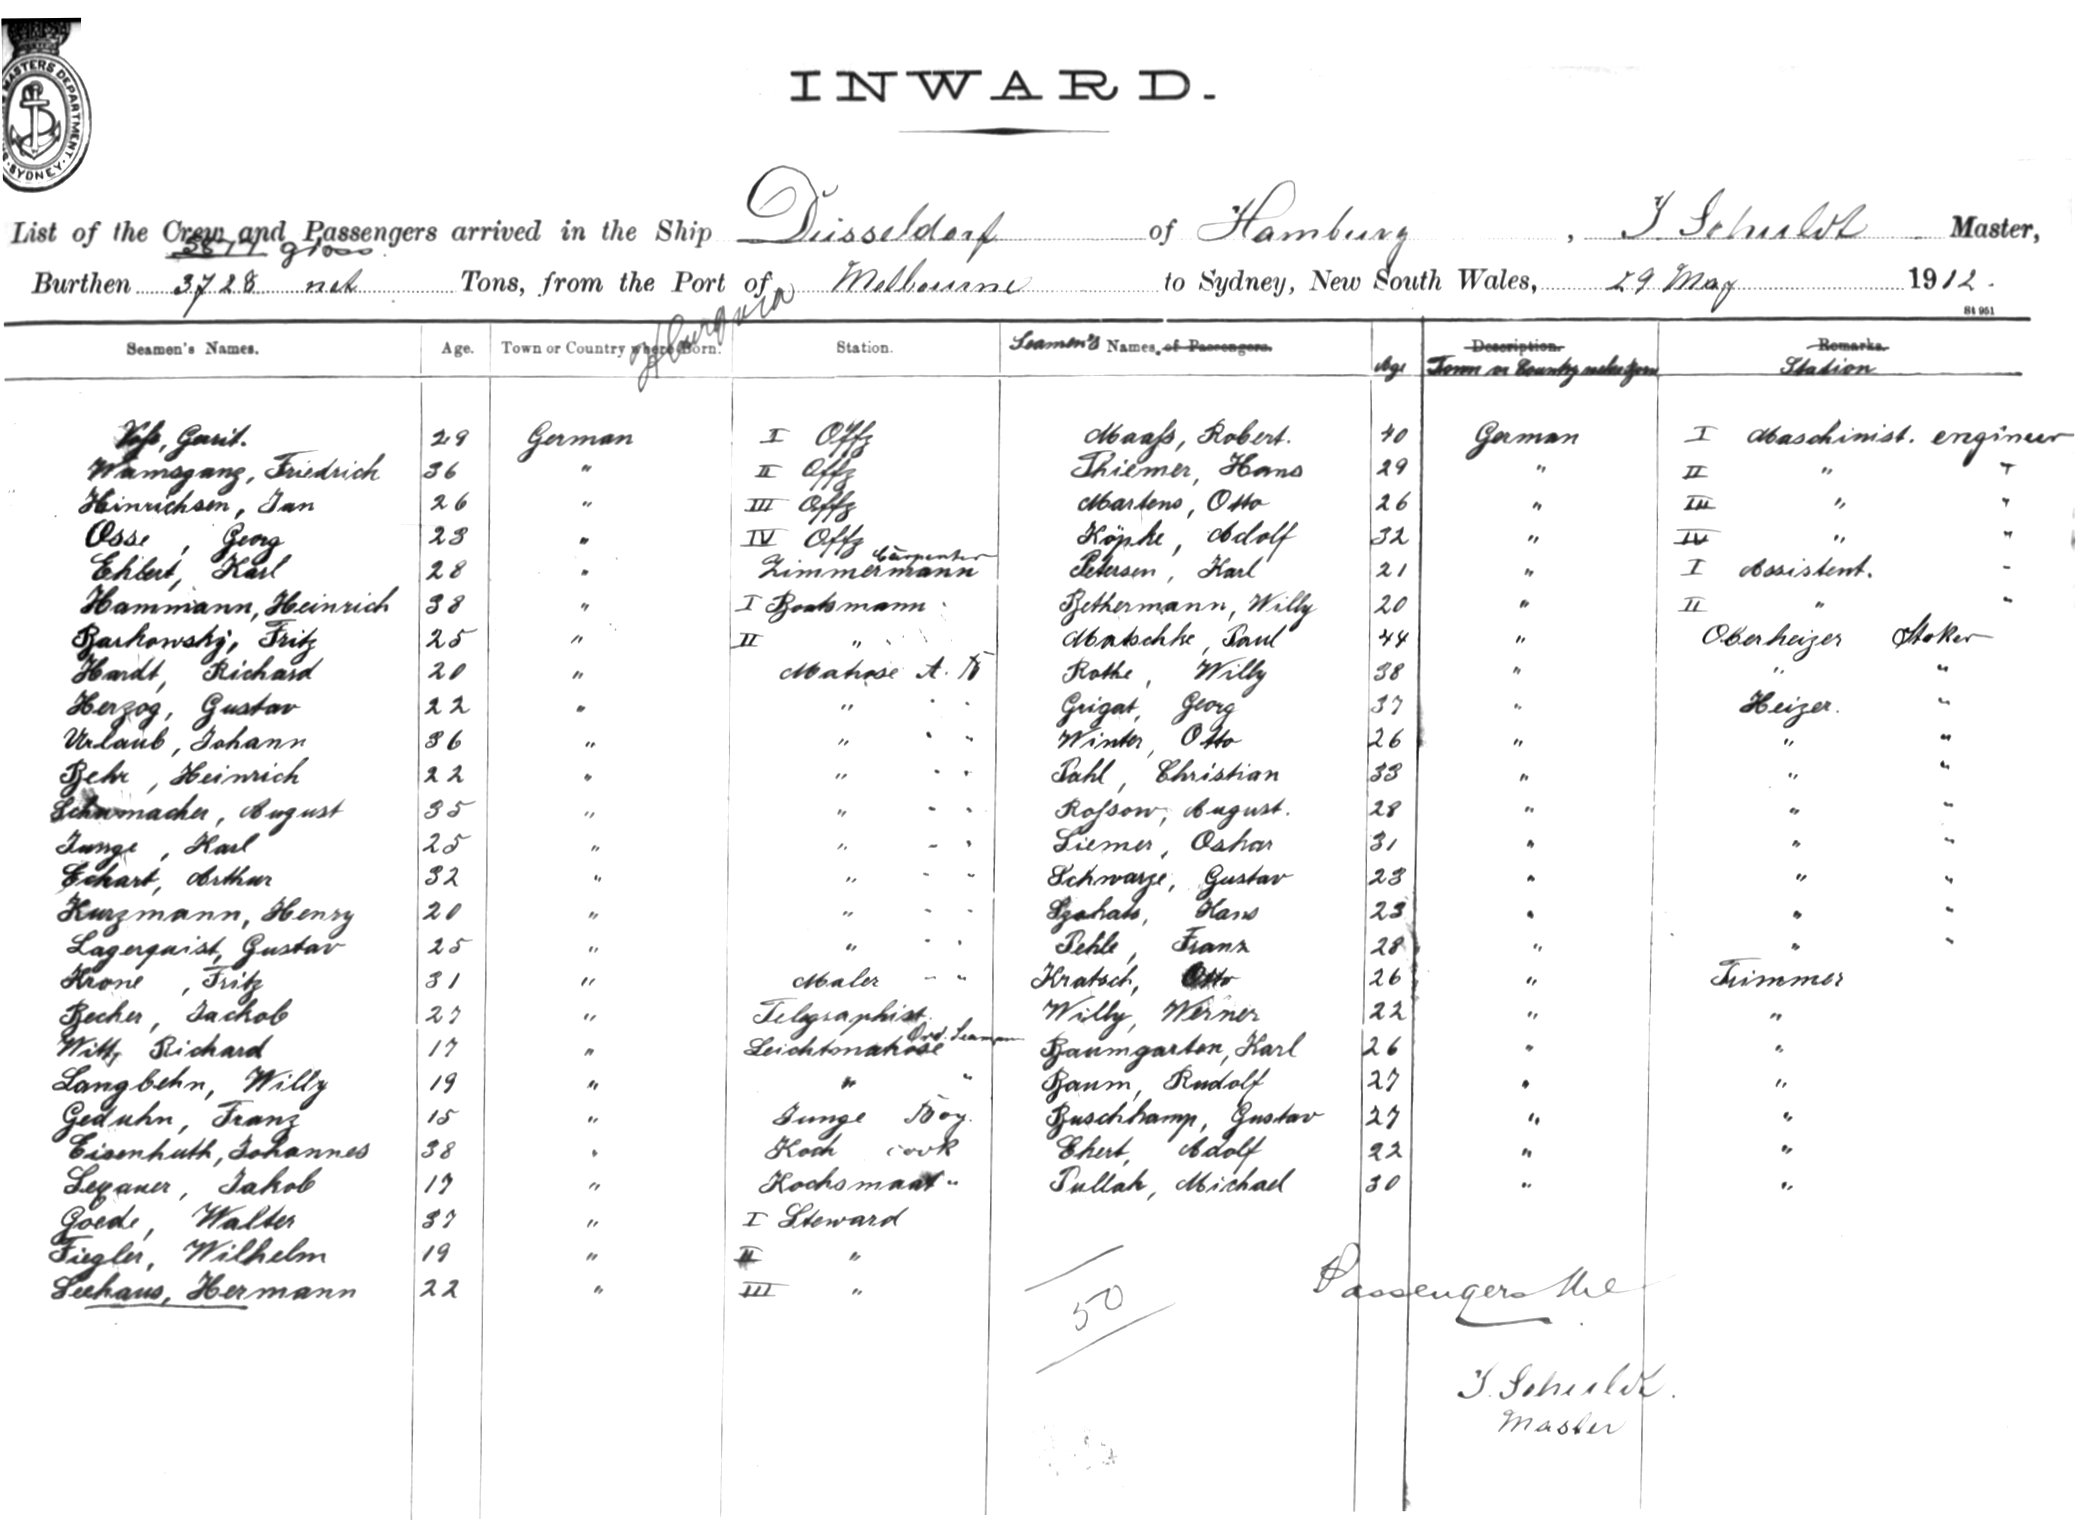 MASTERS DEPARTMENT
SYDNEY
INWARD.
List of the Crew and Passengers arrived in the Ship Düsseldorf of Hamburg, J. Schuldt Master,
gross
Burthen 3728 net Tons, from the Port of Melbourne to Sydney, New South Wales, 29 May 1912.
Seamen's Names. Age. Town or Country where Born. Station. Seamen's Names, of Passengers. Age Description. Town or Country where born Remarks. Station
Voß, Gerrit. 29 German I Offz Maaß, Robert. 40 German I Maschinist. engineer
Wamsganz, Friedrich 36 " II Offz Thiemer, Hans 29 " II " "
Hinrichsen, Jan 26 " III Offz Martens, Otto 26 " III " "
Osse, Georg 23 " IV Offz Köpke, Adolf 32 " IV " "
Ehlert, Karl 28 " Zimmermann Carpenter Petersen, Karl 21 " I Assistent. "
Hammann, Heinrich 38 " I Bootsmann Bethermann, Willy 20 " II " "
Barkowsky, Fritz 25 " II " Matschke, Paul 44 " Oberheizer Stoker
Hardt, Richard 20 " Matrose A. B Rothe, Willy 38 " " "
Herzog, Gustav 22 " " " " Grigat, Georg 37 " Heizer. "
Urlaub, Johann 36 " " " " Winter, Otto 26 " " "
Behr, Heinrich 22 " " " " Pahl, Christian 33 " " "
Schumacher, August 35 " " " " Roßow, August. 28 " " "
Junge, Karl 25 " " " " Siemer, Oskar 31 " " "
Eckart, Arthur 32 " " " " Schwarze, Gustav 23 " " "
Kurzmann, Henry 20 " " " " Hans 23 " " "
Lagerquist, Gustav 25 " " " " Pehle, Franz 28 " " "
Krone, Fritz 31 " Maler " " Kratsch, Otto 26 " Trimmer
Becker, Jackob 27 " Telegraphist. Willy, Werner 22 " "
Witt, Richard 17 " Leichtmatrose Ord. Seaman Baumgarten, Karl 26 " "
Langbehn, Willy 19 " " " Baum, Rudolf 27 " "
Geduhn, Franz 15 " Junge Boy. Buschkamp, Gustav 27 " "
Eisenhuth, Johannes 38 " Koch cook Ehert, Adolf 22 " "
Jakob 17 " Kochsmaat " Pullak, Michael 30 " "
Goede, Walter 37 " I Steward
Fiegler, Wilhelm 19 " II "
Seehaus, Hermann 22 " III "
50
Passengers Nil
J. Schuldt.
Master